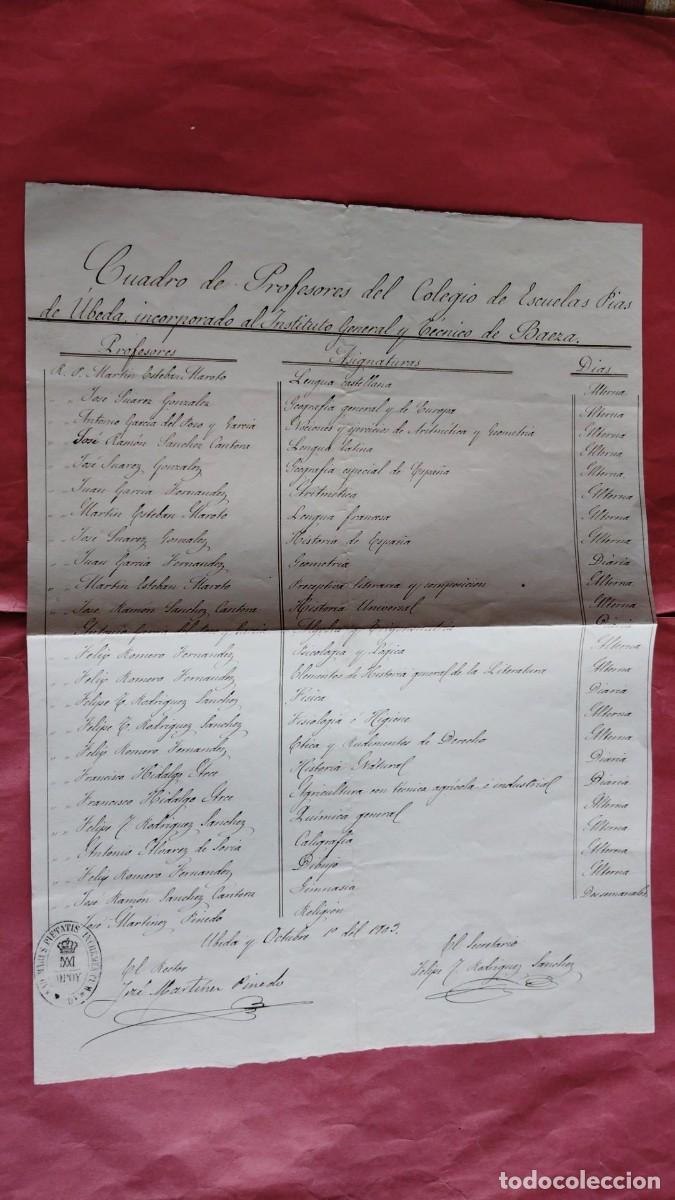 Cuadro de Profesores del Colegio de Escuelas Pias
de Úbeda, incorporado al Instituto General y Técnico de Baeza.
Profesores Asignaturas Dias
R. P. Martin Esteban Maroto Lengua castellana Alterna
" " José Suarez Gonzalez Geografia general y de Europa Alterna
" " Antonio Garcia del Pozo y Garcia Nociones y ejercicios de Aritmética y Geometria Alterna
" " José Ramón Sanchez Cantora Lengua Latina Alterna
" " José Suarez Gonzalez Geografia especial de España Alterna
" " Juan Garcia Fernandez Aritmética Alterna
" " Martin Esteban Maroto Lengua francesa Alterna
" " José Suarez Gonzalez Historia de España Alterna
" " Juan Garcia Fernandez Geometria Diária
" " Martin Esteban Maroto Preceptiva literaria y composicion Alterna
" " José Ramon Sanchez Cantora Historia Universal Alterna
" " Antonio Garcia del Pozo y Garcia Algebra y Trigonometria Diária
" " Felix Romero Fernandez Psicologia y Lógica Alterna
" " Felix Romero Fernandez Elementos de Historia general de la Literatura Alterna
" " Felipe T. Rodriguez Sanchez Fisica Diaria
" " Felipe T. Rodriguez Sanchez Fisiologia é Higiene Alterna
" " Felix Romero Fernandez Etica y Rudimentos de Derecho Alterna
" " Francisco Hidalgo Historia Natural Diaria
" " Francisco Hidalgo Agricultura con técnica agricola é industrial Diária
" " Felipe T. Rodriguez Sanchez Quimica general Alterna
" " Antonio Alvarez de Soria Caligrafia Alterna
" " Felix Romero Fernandez Dibujo Alterna
" " José Ramon Sanchez Cantora Gimnasia Alterna
" " José Martinez Pinedo Religión Dos semanales
Ubeda y Octubre 1º del 1903.
El Rector El Secretario
José Martinez Pinedo Felipe T. Rodriguez Sanchez
PIETATIS INCREMENTUM
todocoleccion